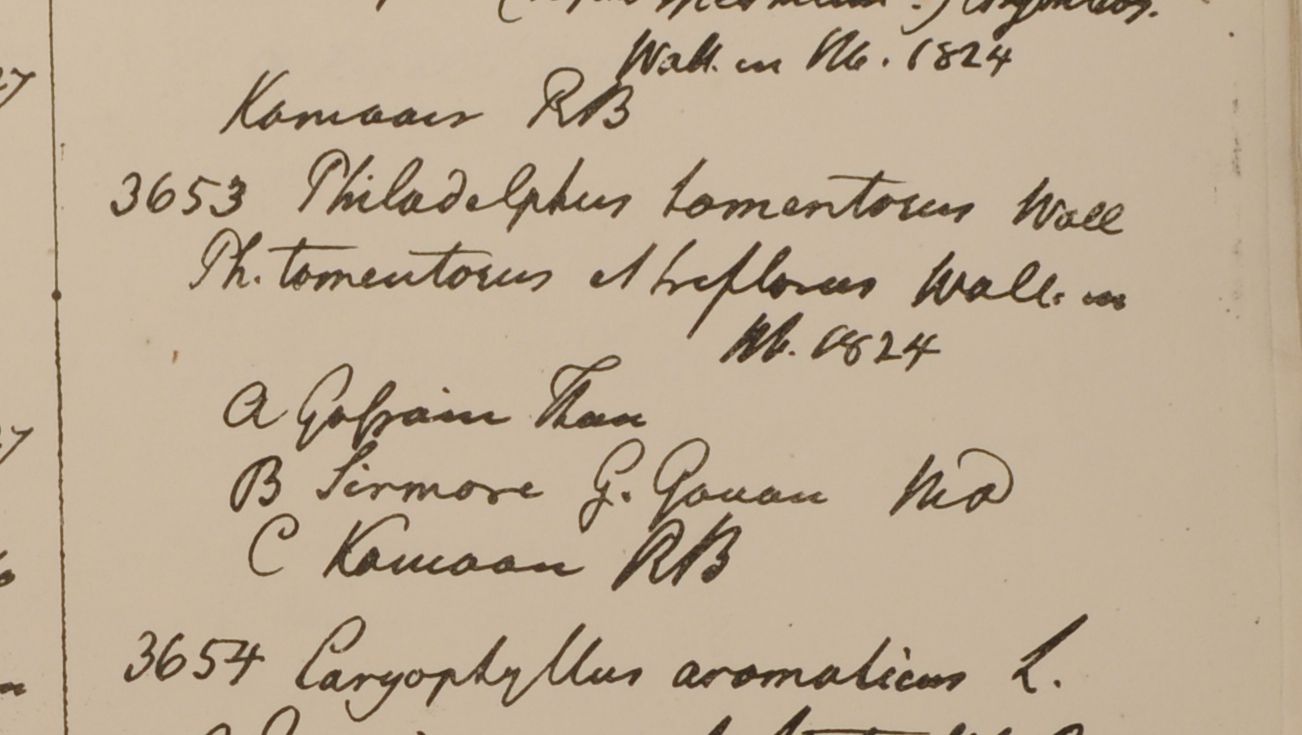 Wall. in Hb. 1824
Kamaon RB
3653 Philadelphus tomentosus Wall
Ph. tomentosus et triflorus Wall. in
Hb. 1824
A Gossain Than
B Sirmore G. Govan
C Kamaon RB
3654 Caryophyllus aromaticus L.